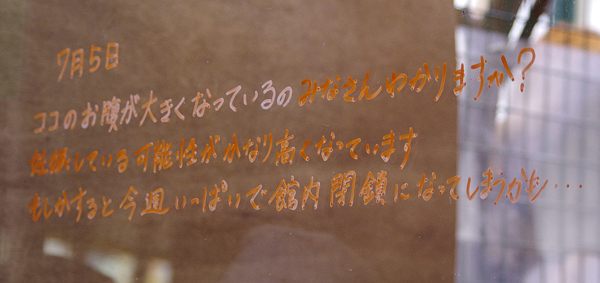 7月5日
ココのお腹が大きくなっているのみなさんわかりますか?
妊娠している可能性がかなり高くなっています
もしかすると今週いっぱいで館内閉鎖になってしまうかも・・・